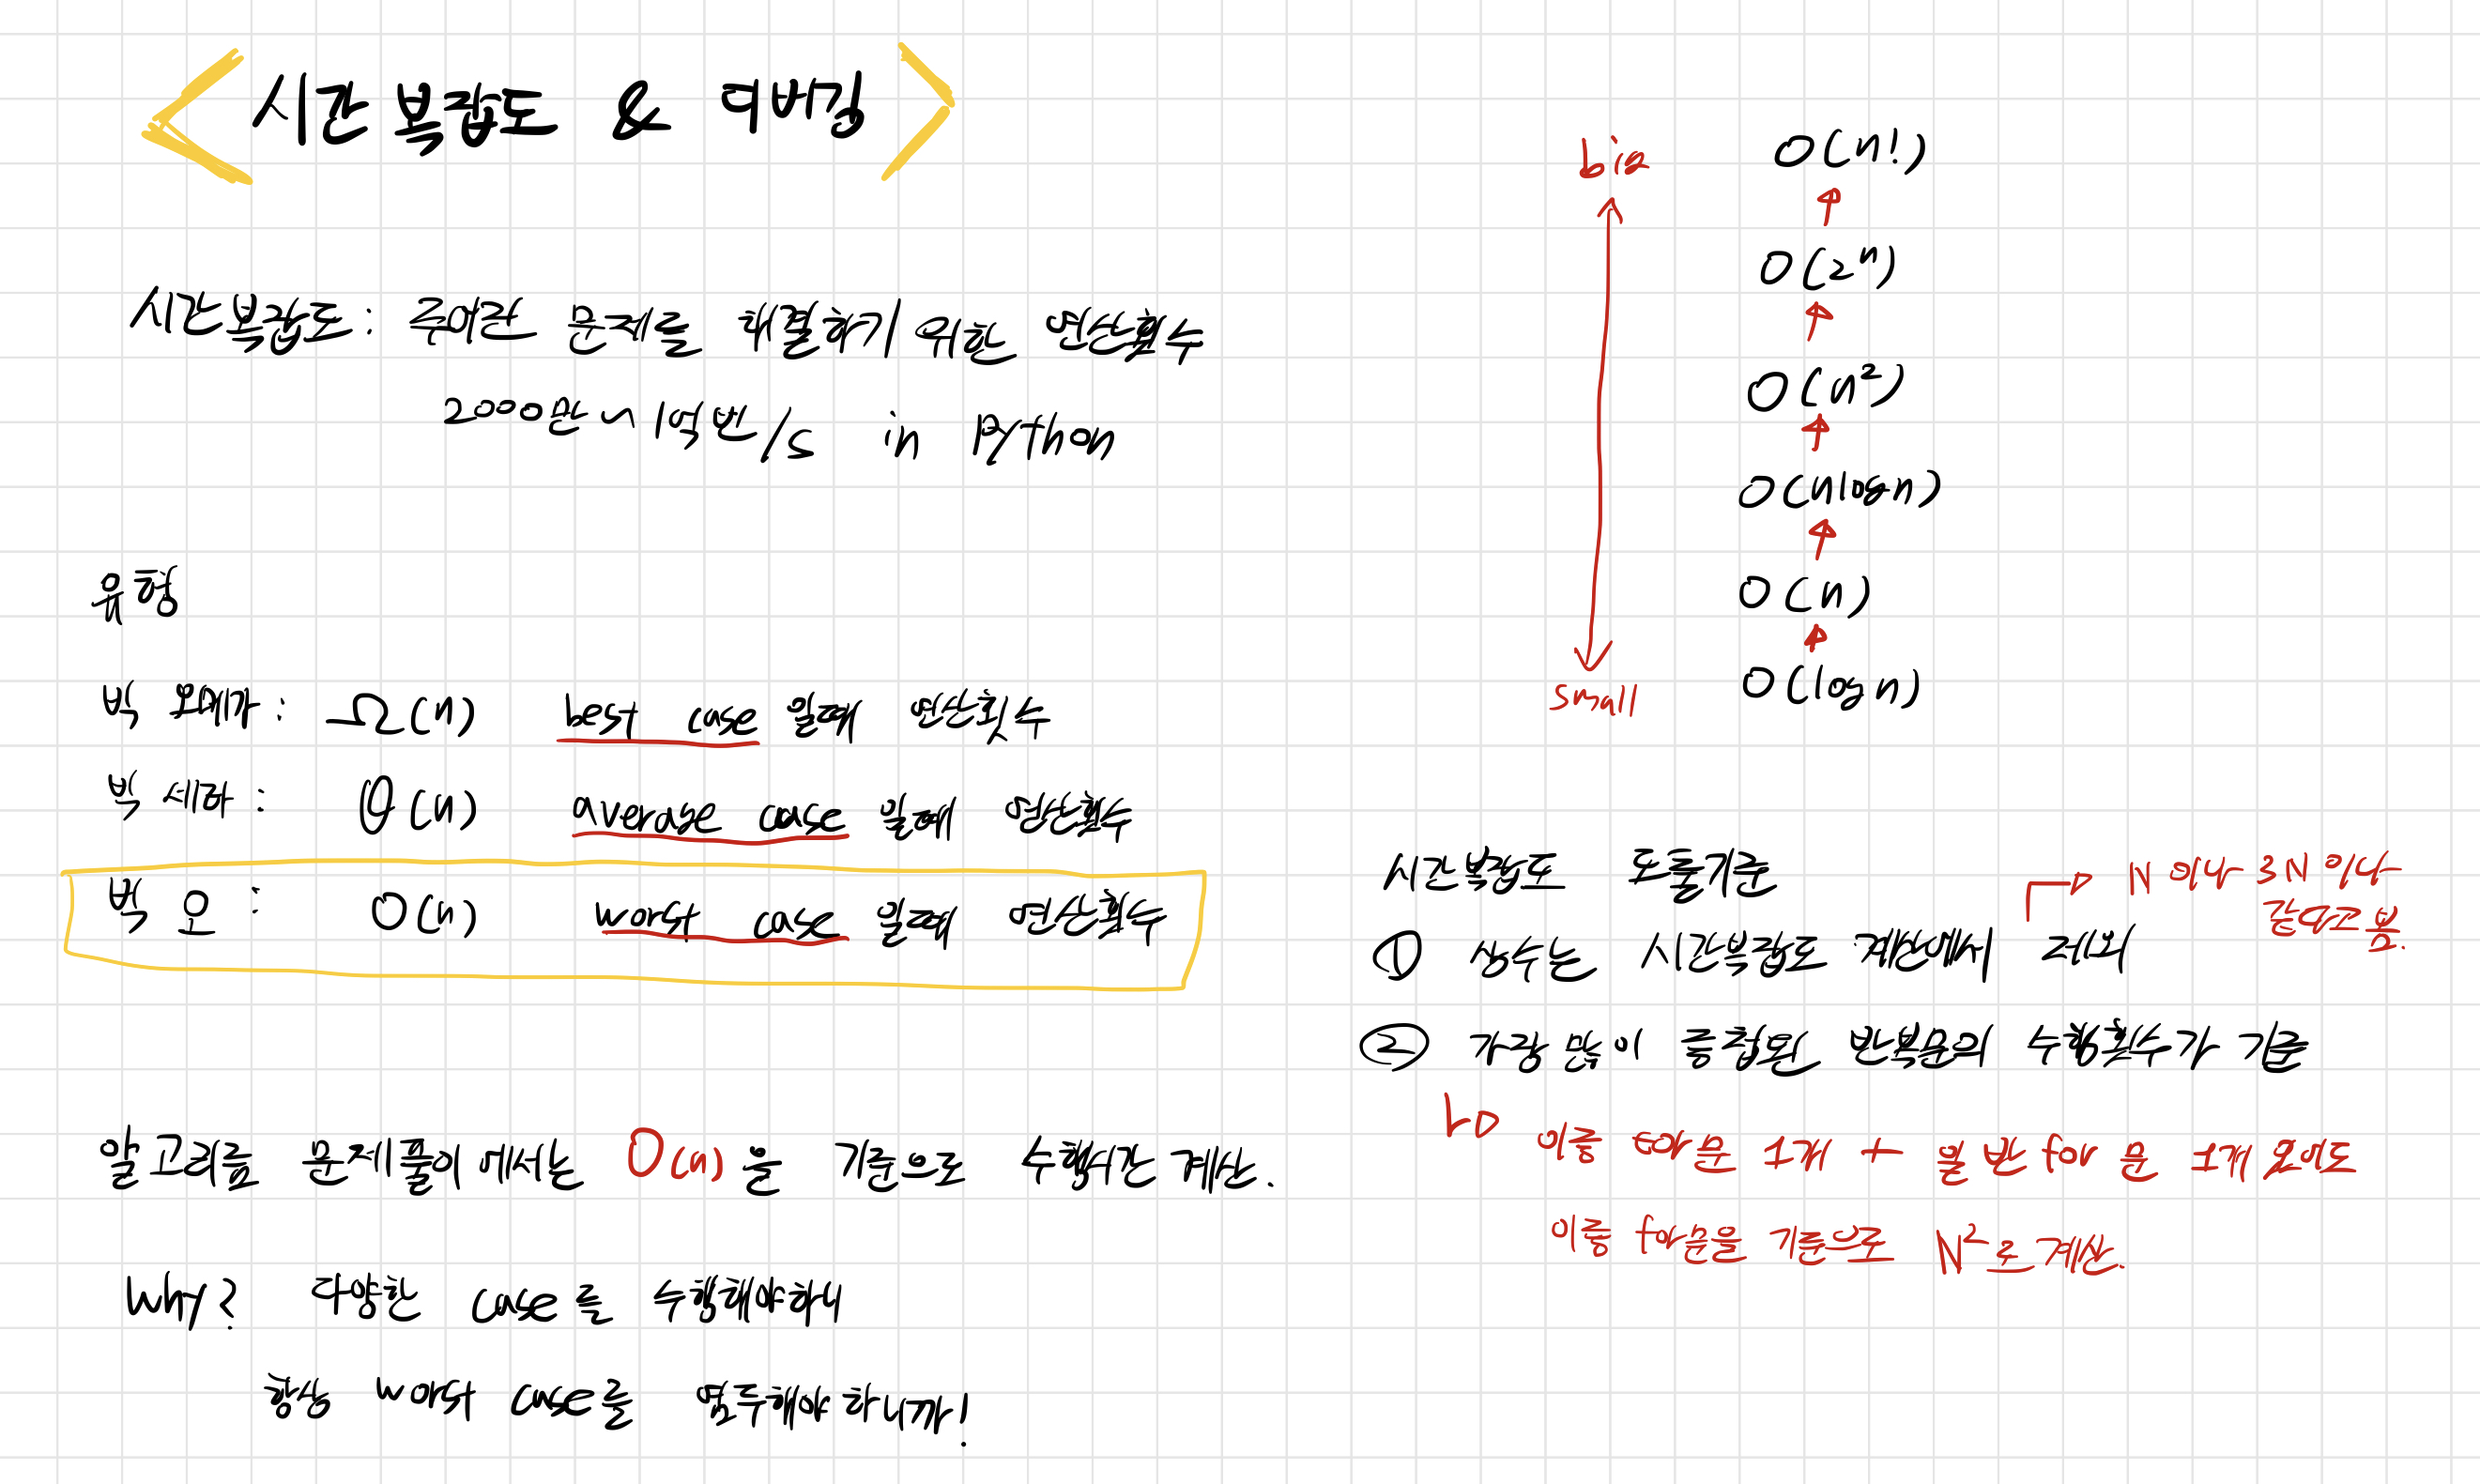 시간 복잡도 & 디버깅
시간복잡도: 주어진 문제를 해결하기 위한 연산횟수
2000만 ~ 1억번/s in Python
유형
빅 오메가: Ω(n) best case 일때 연산횟수
빅 세타: θ(n) Average case 일때 연산횟수
빅 오: O(n) Worst case 일때 연산횟수
알고리즘 문제풀이에서는 O(n)을 기준으로 수행시간 계산.
Why? 다양한 case를 수행해야해서
항상 worst case를 염두해야 하니까!
big
O(n!)
O(2ⁿ)
O(n²)
O(nlogn)
O(n)
O(logn)
small
시간 복잡도 도출기준
① 상수는 시간복잡도 계산에서 제외
N 이나 3N 이나
같은거로 봄.
② 가장 많이 중첩된 반복문의 수행횟수가 기준
이중 for문 1개 + 일반 for 문 1개 있어도
이중 for문을 기준으로 N²로 계산.